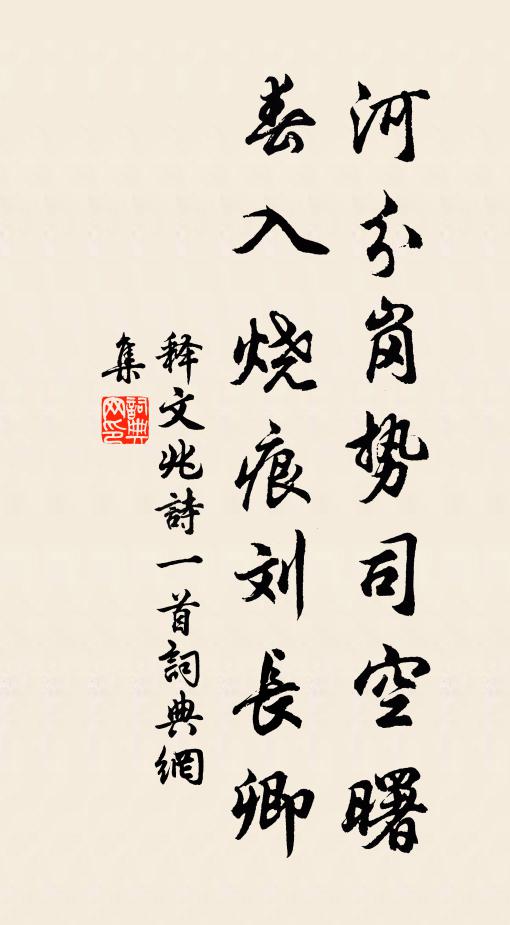 河分岗势司空曙
春入烧痕刘長卿
释文兆詩一首詞典網
集
詞典网印